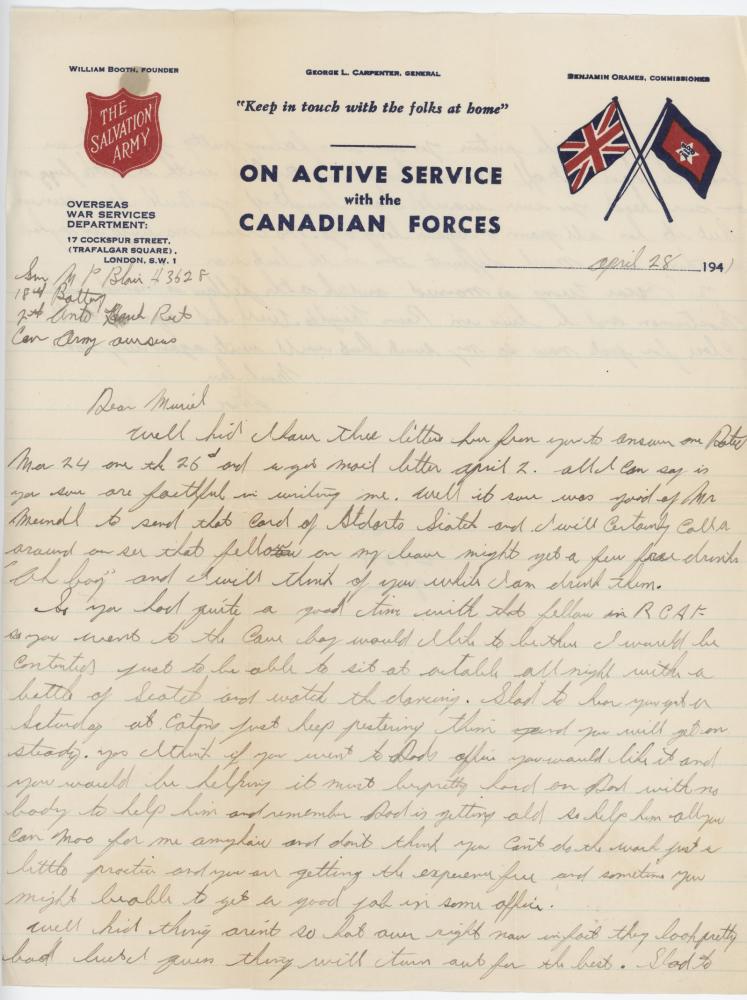 WILLIAM BOOTH, FOUNDER
GEORGE L. CARPENTER, GENERAL
BENJAMIN ORAMES, COMMISSIONER
THE
SALVATION
ARMY
"Keep in touch with the folks at home"
ON ACTIVE SERVICE
with the
CANADIAN FORCES
OVERSEAS
WAR SERVICES
DEPARTMENT:
17 COCKSPUR STREET,
(TRAFALGAR SQUARE),
LONDON, S.W. 1
april 28 1941
M P Blair 43628
18th Battery
2nd Anti Regt
Can Army overseas
Dear Muriel
Well kid I have three letters here from you to answer one Dated
Mar 24 one the 26 and mail letter april 2. all I can say is
you sure are faithful in writing me. Well it sure was good of Mr
to send that card of Scotch and I will Certainly Call
around an see that fellow on my leave might get a few free drinks
"Oh boy" and I will think of you while I am drink them.
So you had quite a good time with that fellow in RCAF
so you went to the Cave boy would I like to be there I would be
Contented just to be able to sit at a table all night with a
bottle of Scotch and watch the dancing. Glad to hear you got a
Saturday at Eatons just keep pestering them and you will get on
steady. yes I think if you went to Dads office you would like it and
you would be helping it must be pretty hard on Dad with no
body to help him and remember Dad is getting old so help him all you
Can Moo for me and dont think you Cant do the work just a
little practice and you are getting the experience free and sometime you
might be able to get a good job in some office.
Well kid things arent so hot over right now infact they look pretty
bad but I guess things will turn out for the best. Glad to